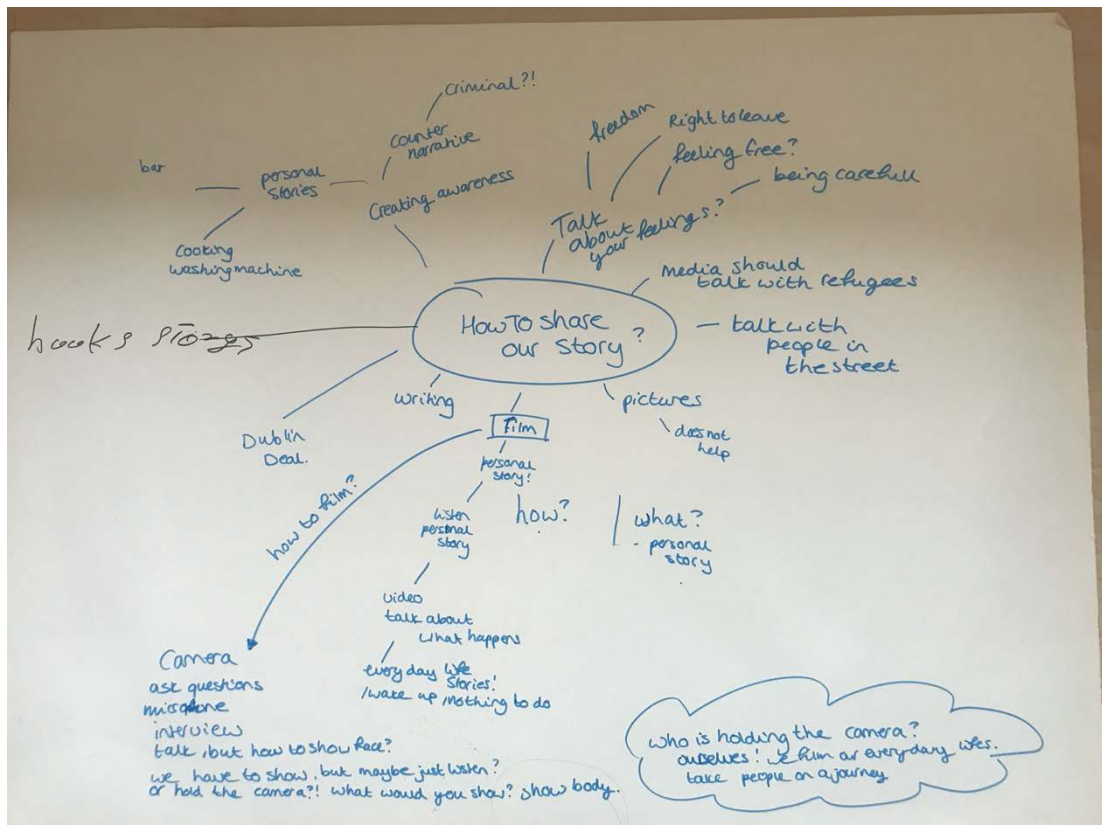 How To share
our story?
Criminal?!
counter
narrative
Creating awareness
personal
stories
bar
cooking
washing machine
freedom
Right to leave
feeling free?
being carefull
Talk
about
your feelings?
media should
talk with refugees
talk with
people in
the street
pictures
does not
help
writing
Dublin
Deal.
Film
personal
story!
listen
personal
story
video
talk about
what happens
every day life
stories!
/wake up /nothing to do
how?
what?
- personal
story
how to film?
Camera
ask questions
microphone
interview
talk, but how to show face?
we have to show, but maybe just listen?
or hold the camera?! what would you show? show body..
who is holding the camera?
ourselves! we film our everyday lifes.
take people on a journey